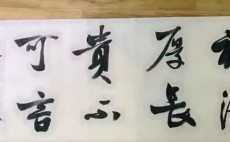 厚長
貴不
可言